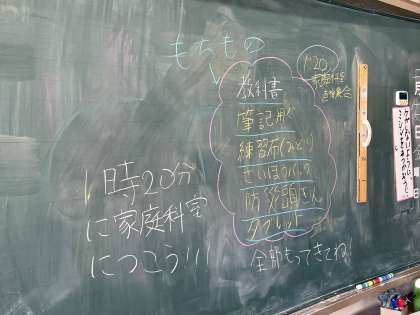 もちもの
教科書
筆記用ぐ
練習布(みどり)
さいほうバック
防災頭きん
タブレット
全部もってきてね!
1時20分
に家庭科室
につこう!!!
1:20
家庭科室